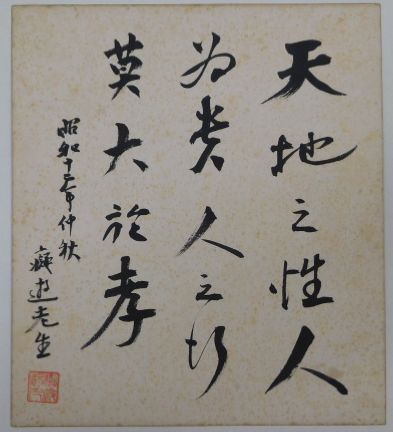 天地之性人
為貴人之行
莫大於孝
昭和十二年仲秋
癡遊老生